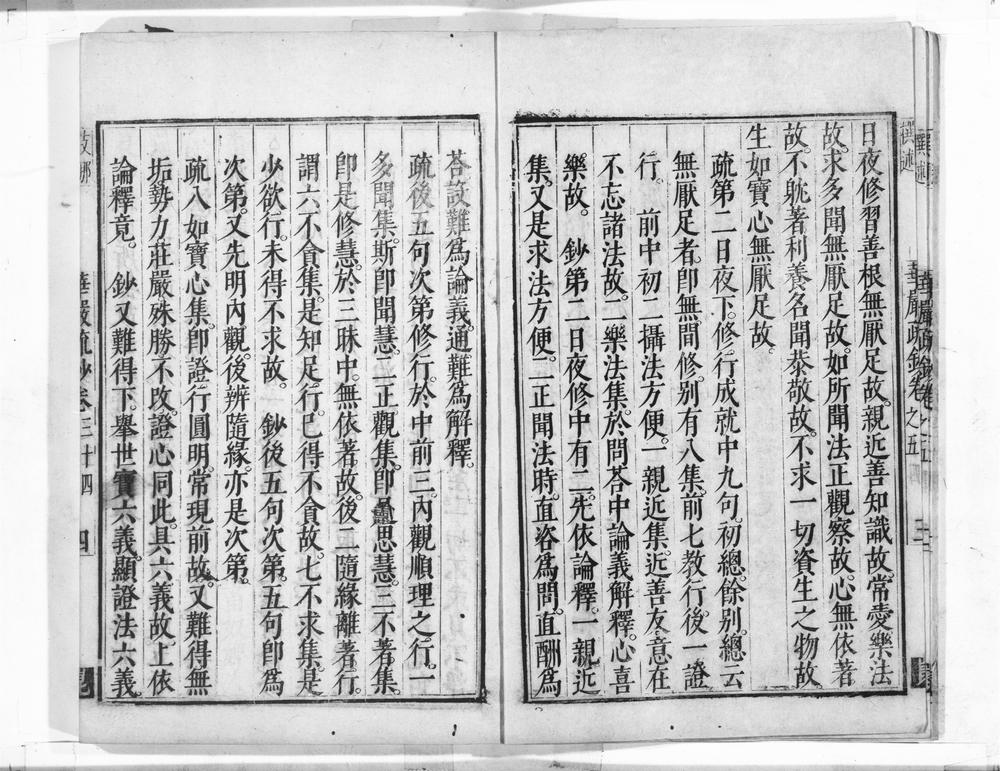 日夜修習善根無厭足故。親近善知識故。常愛樂法
故。求多聞無厭足故。如所聞法正觀察故。心無依著
故。不躭著利養名聞恭敬故。不求一切資生之物故。
生如寶心無厭足故。
疏第二日夜下。修行成就中九句。初總。餘別。總云
無厭足者。卽無間修。別有八集。前七教行。後一證
行。 前中初二攝法方便。一親近集。近善友。意在
不忘諸法故。二樂法集。於問荅中論義解釋。心喜
樂故。 鈔第二日夜修中有二。先依論釋。一親近
集。又是求法方便。二正聞法時。直咨爲問。直酬爲
荅。設難爲論義。通難爲解釋。
疏後五句次第修行。於中前三。內觀順理之行。一
多聞集。斯卽聞慧。二正觀集。卽思慧。三不著集。
卽是修慧。於三昧中。無依著故。後二隨緣離著行。
謂六不貪集。是知足行。已得不貪故。七不求集。是
少欲行。未得不求故。 鈔後五句次第。五句卽爲
次第。又先明內觀。後辨隨緣。亦是次第。
疏八如寶心集。卽證行圓明。常現前故。又難得無
垢勢力莊嚴殊勝不改。證心同此。具六義故。上依
論釋竟。 鈔又難得下。舉世寶六義。顯證法六義。
華嚴疏鈔卷三十四
四
華嚴疏鈔卷
之五
三